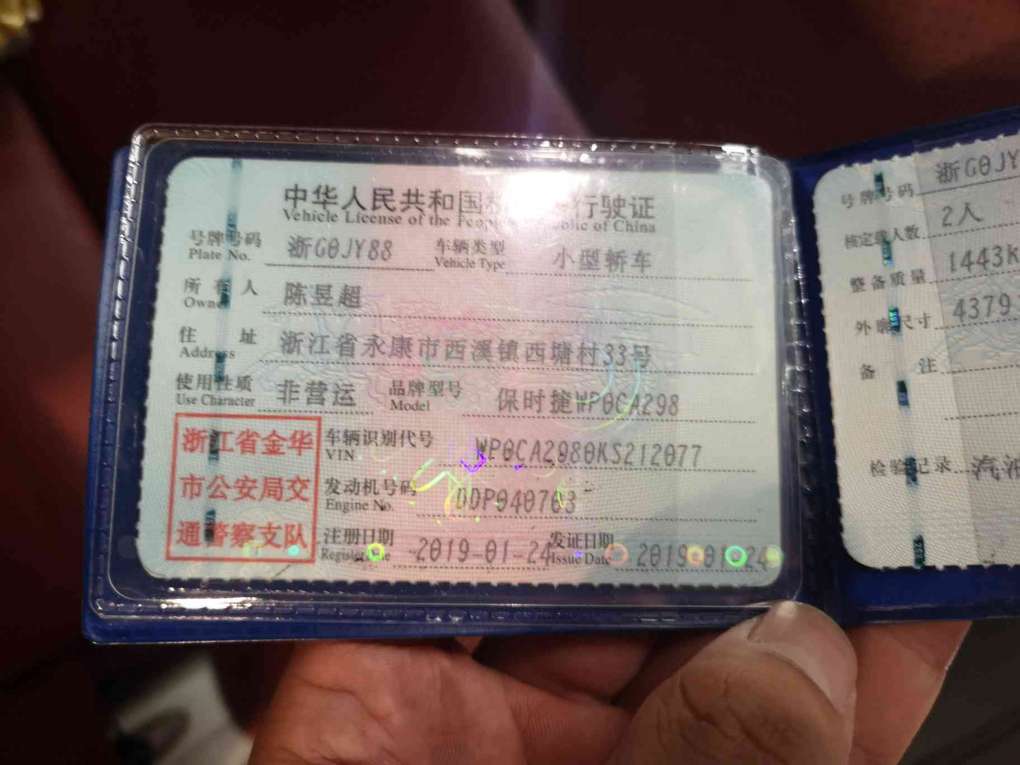 中华人民共和国 行驶证
Vehicle License of the People's Republic of China
号牌号码 浙G0JY88 车辆类型 小型轿车
Plate No. Vehicle Type
所有人 陈昱超
Owner
住址 浙江省永康市西溪镇西塘村33号
Address
使用性质 非营运 品牌型号 保时捷WP0CA298
Use Character Model
浙江省金华
市公安局交
通警察支队
车辆识别代号 WP0CA2980KS212077
VIN
发动机号码 DDP040703
Engine No.
注册日期 2019-01-24 发证日期 2019-01-24
Register Date Issue Date
号牌号码 浙G0JY
核定载人数 2人
整备质量 1443k
外廓尺寸 4379
备注
检验记录 汽油